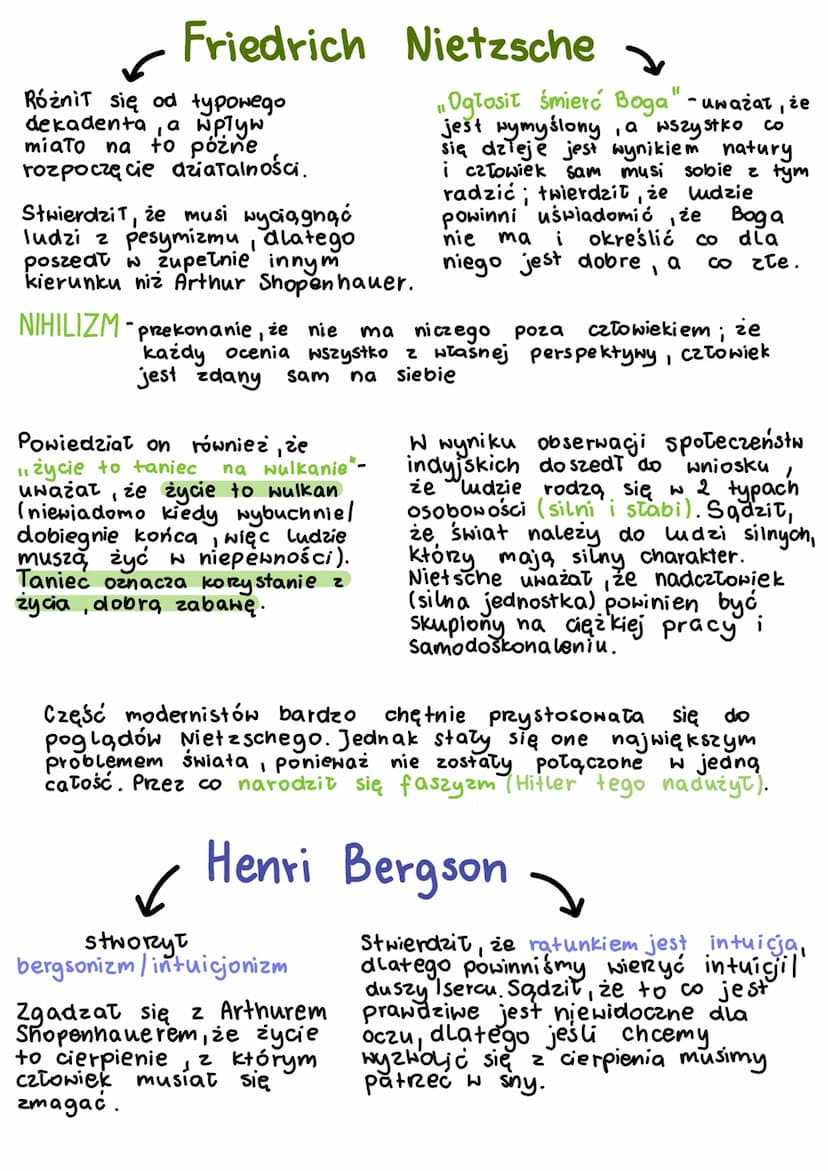 Friedrich Nietzsche
Różnił się od typowego
dekadenta, a wpływ
miało na to późne
rozpoczęcie działalności.
Stwierdził, że musi wyciągnąć
ludzi z pesymizmu, dlatego
poszedł w zupełnie innym
kierunku niż Arthur Shopenhauer.
„Ogłosił śmierć Boga" - uważał, że
jest wymyślony, a wszystko co
się dzieje jest wynikiem natury
i człowiek sam musi sobie z tym
radzić; twierdził, że ludzie
powinni uświadomić, że Boga
nie ma i określić co dla
niego jest dobre, a co złe.
NIHILIZM - przekonanie, że nie ma niczego poza człowiekiem; że
każdy ocenia wszystko z własnej perspektywy, człowiek
jest zdany sam na siebie
Powiedział on również, że
„życie to taniec na wulkanie" -
uważał, że życie to wulkan
(niewiadomo kiedy wybuchnie/
dobiegnie końca, więc ludzie
muszą żyć w niepewności).
Taniec oznacza korzystanie z
życia, dobrą zabawę.
W wyniku obserwacji społeczeństw
indyjskich doszedł do wniosku,
że ludzie rodzą się w 2 typach
osobowości (silni i słabi). Sądził,
że świat należy do ludzi silnych,
którzy mają silny charakter.
Nietsche uważał, że nadczłowiek
(silna jednostka) powinien być
skupiony na ciężkiej pracy i
samodoskonaleniu.
Część modernistów bardzo chętnie przystosowała się do
poglądów Nietzschego. Jednak stały się one największym
problemem świata, ponieważ nie zostały połączone w jedną
całość. Przez co narodził się faszyzm (Hitler tego nadużył).
Henri Bergson
stworzył
bergsonizm/intuicjonizm
Zgadzał się z Arthurem
Shopenhauerem, że życie
to cierpienie, z którym
człowiek musiał się
zmagać.
Stwierdził, że ratunkiem jest intuicja,
dlatego powinniśmy wierzyć intuicji/
duszy/sercu. Sądził, że to co jest
prawdziwe jest niewidoczne dla
oczu, dlatego jeśli chcemy
wyzwolić się z cierpienia musimy
patrzeć w sny.